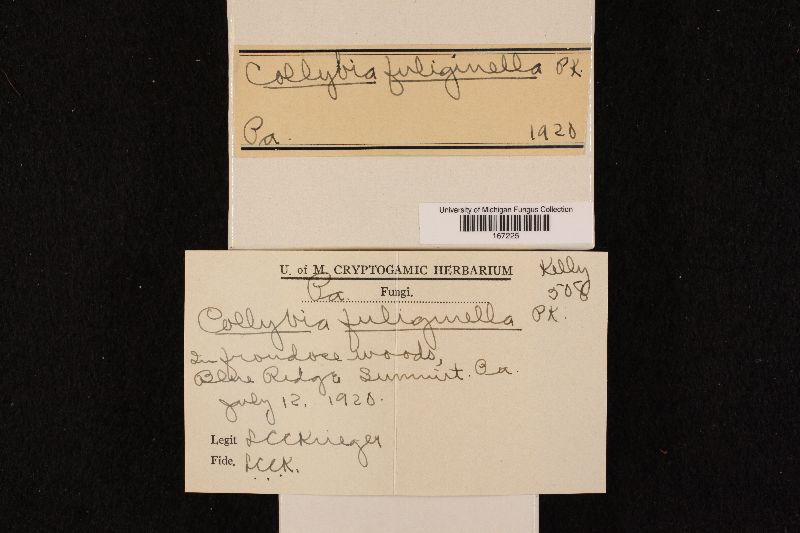 Collybia fuliginella PK.
Pa. 1920
University of Michigan Fungus Collection
167225
U. of M. CRYPTOGAMIC HERBARIUM
Kelly
508
Pa. Fungi.
Collybia fuliginella PK.
In frondose woods,
Blue Ridge Summit. Pa.
July 12, 1920.
Legit LCCKrieger
Fide. LCCK.